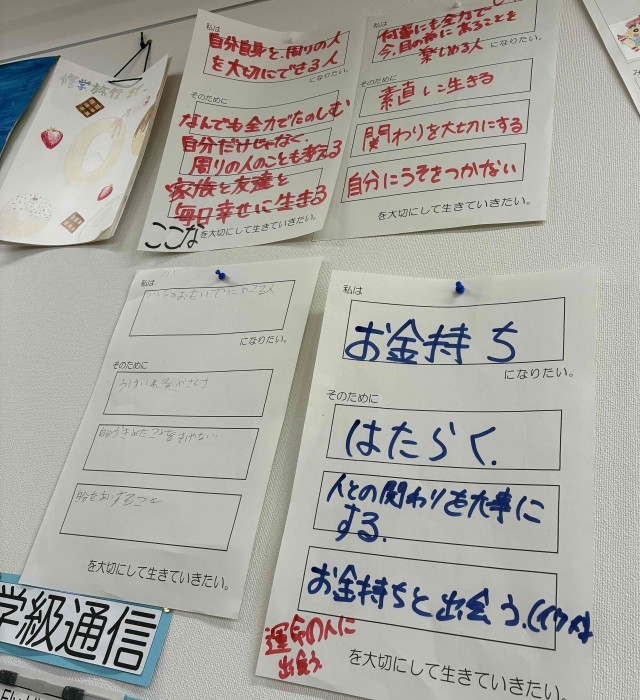 修学旅行
私は
自分自身と、周りの人
を大切にできる人
になりたい。
そのために
なんでも全力でたのしむ
自分だけじゃなく、
周りの人のことも考える
家族と友達と
毎日幸せに生きる
ここな
を大切にして生きていきたい。
私は
何事にも全力で
今、目の前にあることを
楽しめる人
になりたい。
そのために
素直に生きる
関わりを大切にする
自分にうそをつかない
を大切にして生きていきたい。
私は
になりたい。
そのために
自分がきめたことをまげない
を大切にして生きていきたい。
私は
お金持ち
になりたい。
そのために
はたらく.
人との関わりを大事に
する.
お金持ちと出会う.(イケメン
運命の人に
出会う.
を大切にして生きていきたい。
学級通信